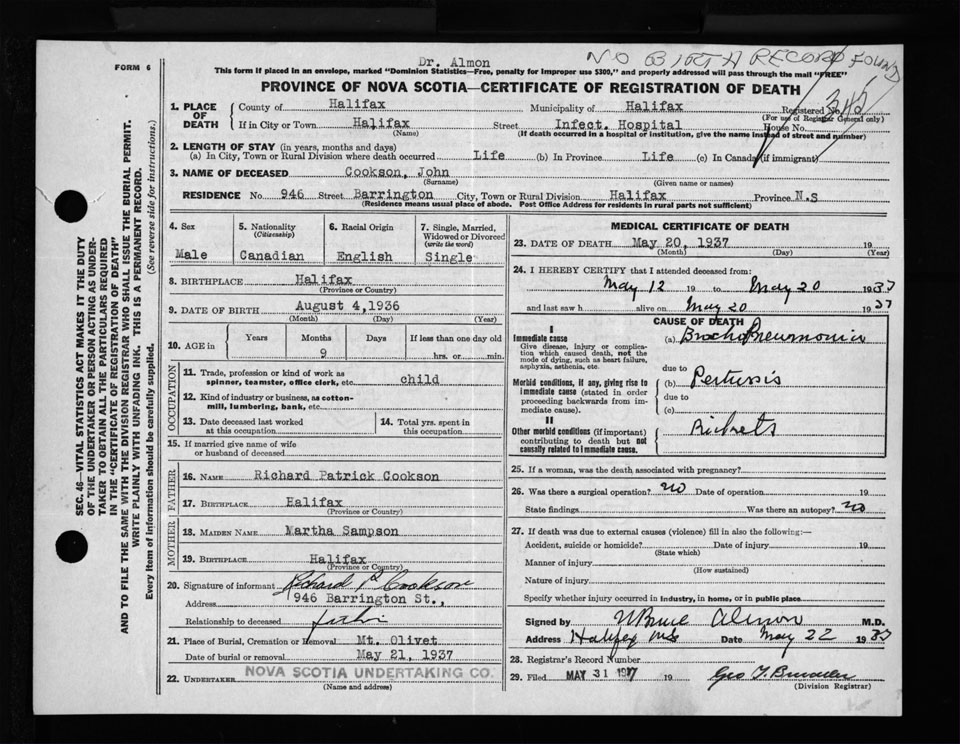 Dr. Almon
NO BIRTH RECORD FOUND
FORM 6
This form if placed in an envelope, marked "Dominion Statistics—Free, penalty for improper use $300," and properly addressed will pass through the mail "FREE"
PROVINCE OF NOVA SCOTIA—CERTIFICATE OF REGISTRATION OF DEATH
SEC. 46—VITAL STATISTICS ACT MAKES IT THE DUTY
OF THE UNDERTAKER OR PERSON ACTING AS UNDER-
TAKER TO OBTAIN ALL THE PARTICULARS REQUIRED
IN THE "CERTIFICATE OF REGISTRATION OF DEATH"
AND TO FILE THE SAME WITH THE DIVISION REGISTRAR WHO SHALL ISSUE THE BURIAL PERMIT.
WRITE PLAINLY WITH UNFADING INK. THIS IS A PERMANENT RECORD.
Every item of information should be carefully supplied. (See reverse side for instructions.)
1. PLACE OF DEATH
County of Halifax Municipality of Halifax Registered No. 342
(For use of Registrar General only)
If in City or Town Halifax Street Infect. Hospital House No.
(Name) (If death occurred in a hospital or institution, give the name instead of street and number)
2. LENGTH OF STAY (in years, months and days)
(a) In City, Town or Rural Division where death occurred Life (b) In Province Life (c) In Canada (if immigrant)
3. NAME OF DECEASED Cookson, John
(Surname) (Given name or names)
RESIDENCE No. 946 Street Barrington City, Town or Rural Division Halifax Province N.S
(Residence means usual place of abode. Post Office Address for residents in rural parts not sufficient)
4. Sex
Male
5. Nationality
(Citizenship)
Canadian
6. Racial Origin
English
7. Single, Married,
Widowed or Divorced
(write the word)
Single
8. BIRTHPLACE Halifax
(Province or Country)
9. DATE OF BIRTH August 4, 1936
(Month) (Day) (Year)
10. AGE in
Years Months Days If less than one day old
9 hrs. or min.
OCCUPATION
11. Trade, profession or kind of work as
spinner, teamster, office clerk, etc. child
12. Kind of industry or business, as cotton-
mill, lumbering, bank, etc.
13. Date deceased last worked
at this occupation
14. Total yrs. spent in
this occupation
15. If married give name of wife
or husband of deceased
FATHER
16. NAME Richard Patrick Cookson
17. BIRTHPLACE Halifax
(Province or Country)
MOTHER
18. MAIDEN NAME Martha Sampson
19. BIRTHPLACE Halifax
(Province or Country)
20. Signature of informant Richard P Cookson
Address 946 Barrington St.,
Relationship to deceased father
21. Place of Burial, Cremation or Removal Mt. Olivet
Date of burial or removal May 21, 1937
22. UNDERTAKER NOVA SCOTIA UNDERTAKING CO.
(Name and address)
MEDICAL CERTIFICATE OF DEATH
23. DATE OF DEATH May 20, 1937 19
(Month) (Day) (Year)
24. I HEREBY CERTIFY that I attended deceased from:
May 12 19 to May 20 1937
and last saw h alive on May 20 1937
CAUSE OF DEATH
I
Immediate cause
Give disease, injury or complica-
tion which caused death, not the
mode of dying, such as heart failure,
asphyxia, asthenia, etc.
(a) Broncho Pneumonia
due to
Morbid conditions, if any, giving rise to
immediate cause (stated in order
proceeding backwards from im-
mediate cause).
(b) Pertussis
due to
(c)
II
Other morbid conditions (if important)
contributing to death but not
causally related to immediate cause.
Rickets
25. If a woman, was the death associated with pregnancy?
26. Was there a surgical operation? no Date of operation 19
State findings Was there an autopsy? no
27. If death was due to external causes (violence) fill in also the following:—
Accident, suicide or homicide? Date of injury 19
(State which)
Manner of injury
(How sustained)
Nature of injury
Specify whether injury occurred in industry, in home, or in public place
Signed by Bruce Almon M.D.
Address Halifax NS Date May 22 1937
28. Registrar's Record Number
29. Filed MAY 31 1937 19
(Division Registrar)